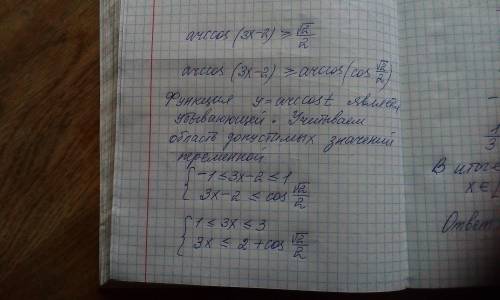 arccos (3x-2) ≥ √2/2
arccos (3x-2) ≥ arccos(cos √2/2)
Функция y = arccos t являет
убывающей. Учитываем
область допустимых значений
переменной
{ -1 ≤ 3x-2 ≤ 1
3x-2 ≤ cos √2/2
{ 1 ≤ 3x ≤ 3
3x ≤ 2 + cos √2/2
1/3
В итоге
x ∈ [
Ответ: